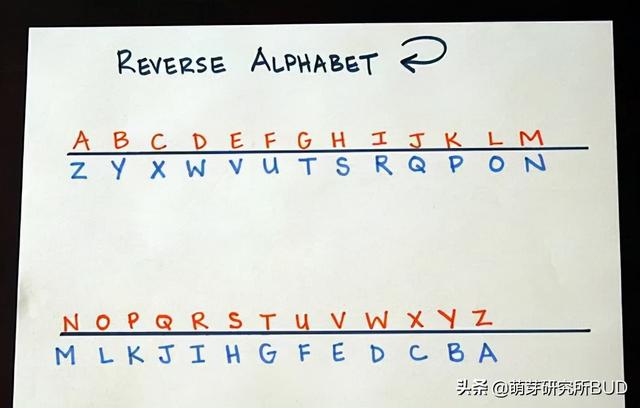 REVERSE ALPHABET
A B C D E F G H I J K L M
Z Y X W V U T S R Q P O N
N O P Q R S T U V W X Y Z
M L K J I H G F E D C B A
头条 @萌芽研究所BUD